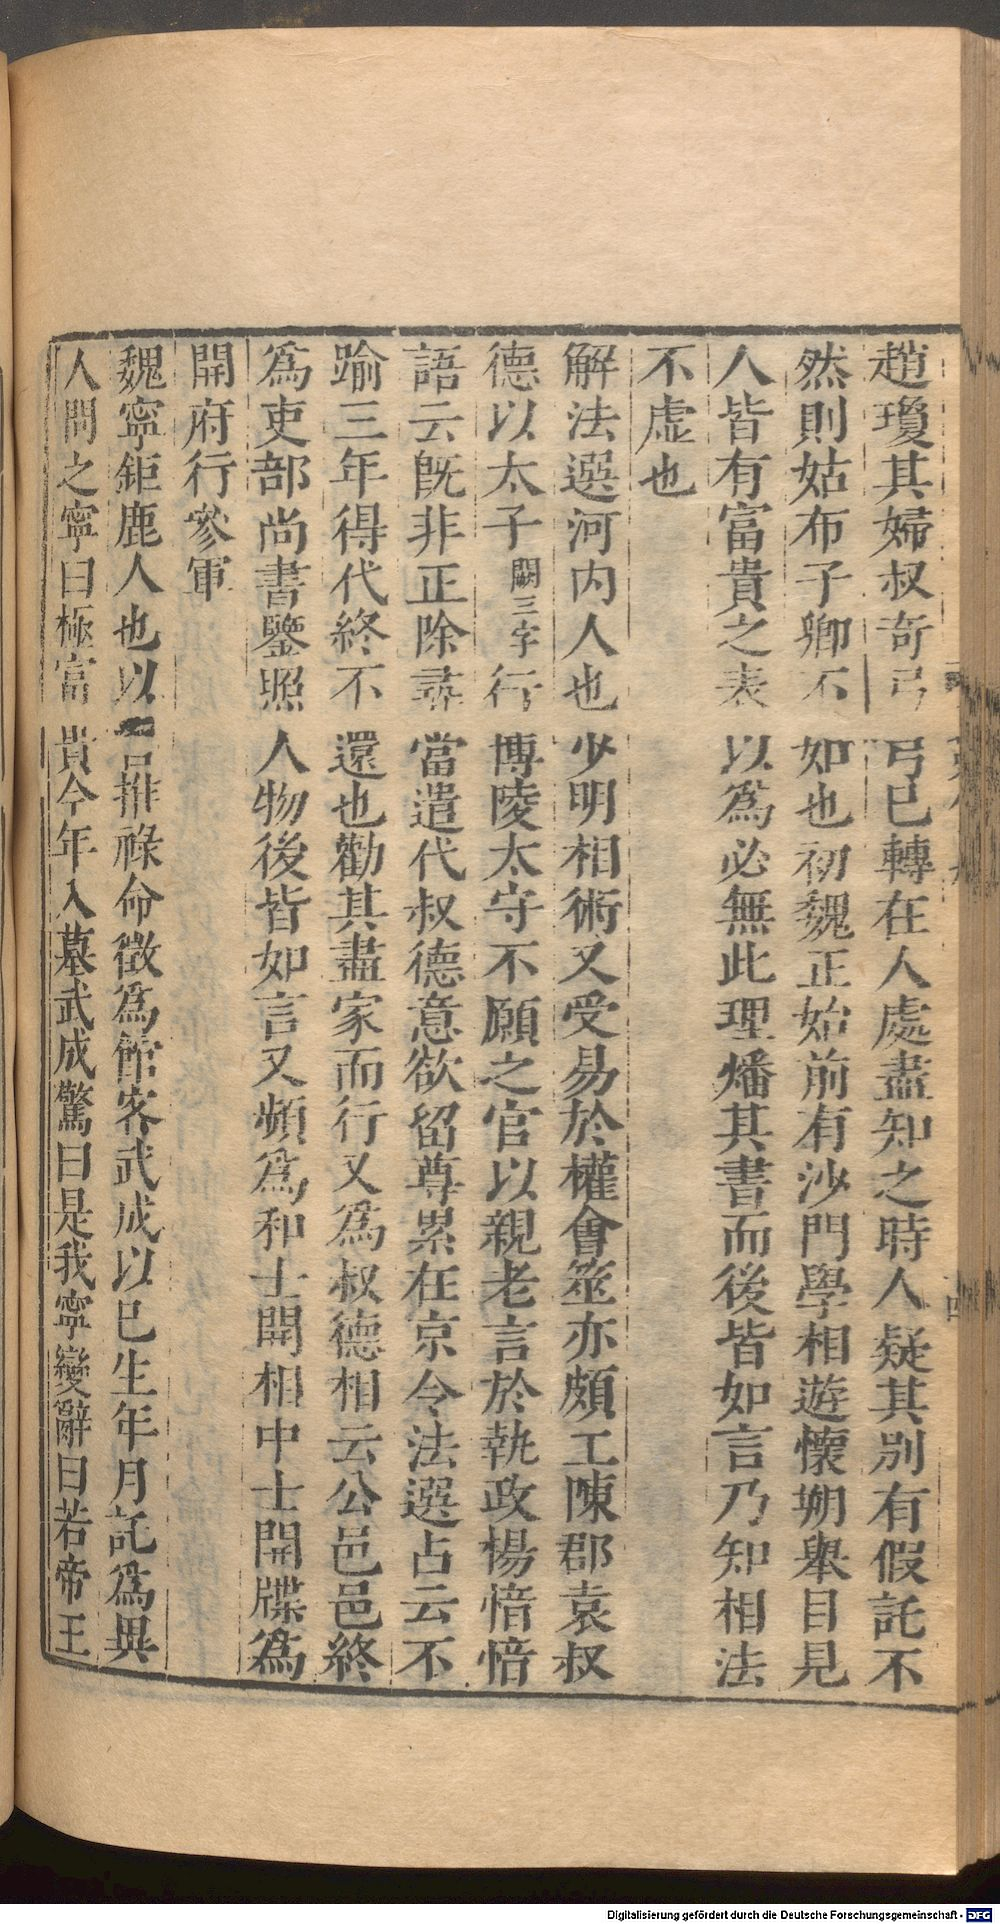 趙瓊其婦叔奇弓弓已轉在人處盡知之時人疑其別有假託不
然則姑布子卿不如也初魏正始前有沙門學相遊懷朔舉目見
人皆有富貴之表以為必無此理燔其書而後皆如言乃知相法
不虛也
解法選河內人也少明相術又受易於權會筮亦頗工陳郡袁叔
德以太子闕三字行博陵太守不願之官以親老言於執政楊愔愔
語云既非正除尋當遣代叔德意欲留尊累在京令法選占云不
踰三年得代終不還也勸其盡家而行又為叔德相云公邑邑終
為吏部尚書鑒照人物後皆如言又頻為和士開相中士開牒為
開府行參軍
魏寧鉅鹿人也以善推祿命徵為館客武成以己生年月託為異
人問之寧曰極富貴今年入墓武成驚曰是我寧變辭曰若帝王
Digitalisierung gefördert durch die Deutsche Forschungsgemeinschaft - DFG